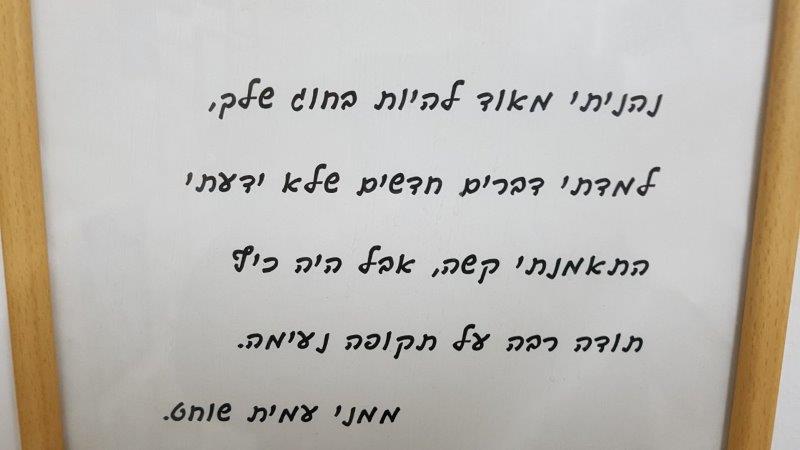 נהניתי מאוד להיות בחוג שלך,
למדתי דברים חדשים שלא ידעתי
התאמנתי קשה, אבל היה כיף
תודה רבה על תקופה נעימה.
ממני עמית שוחט.